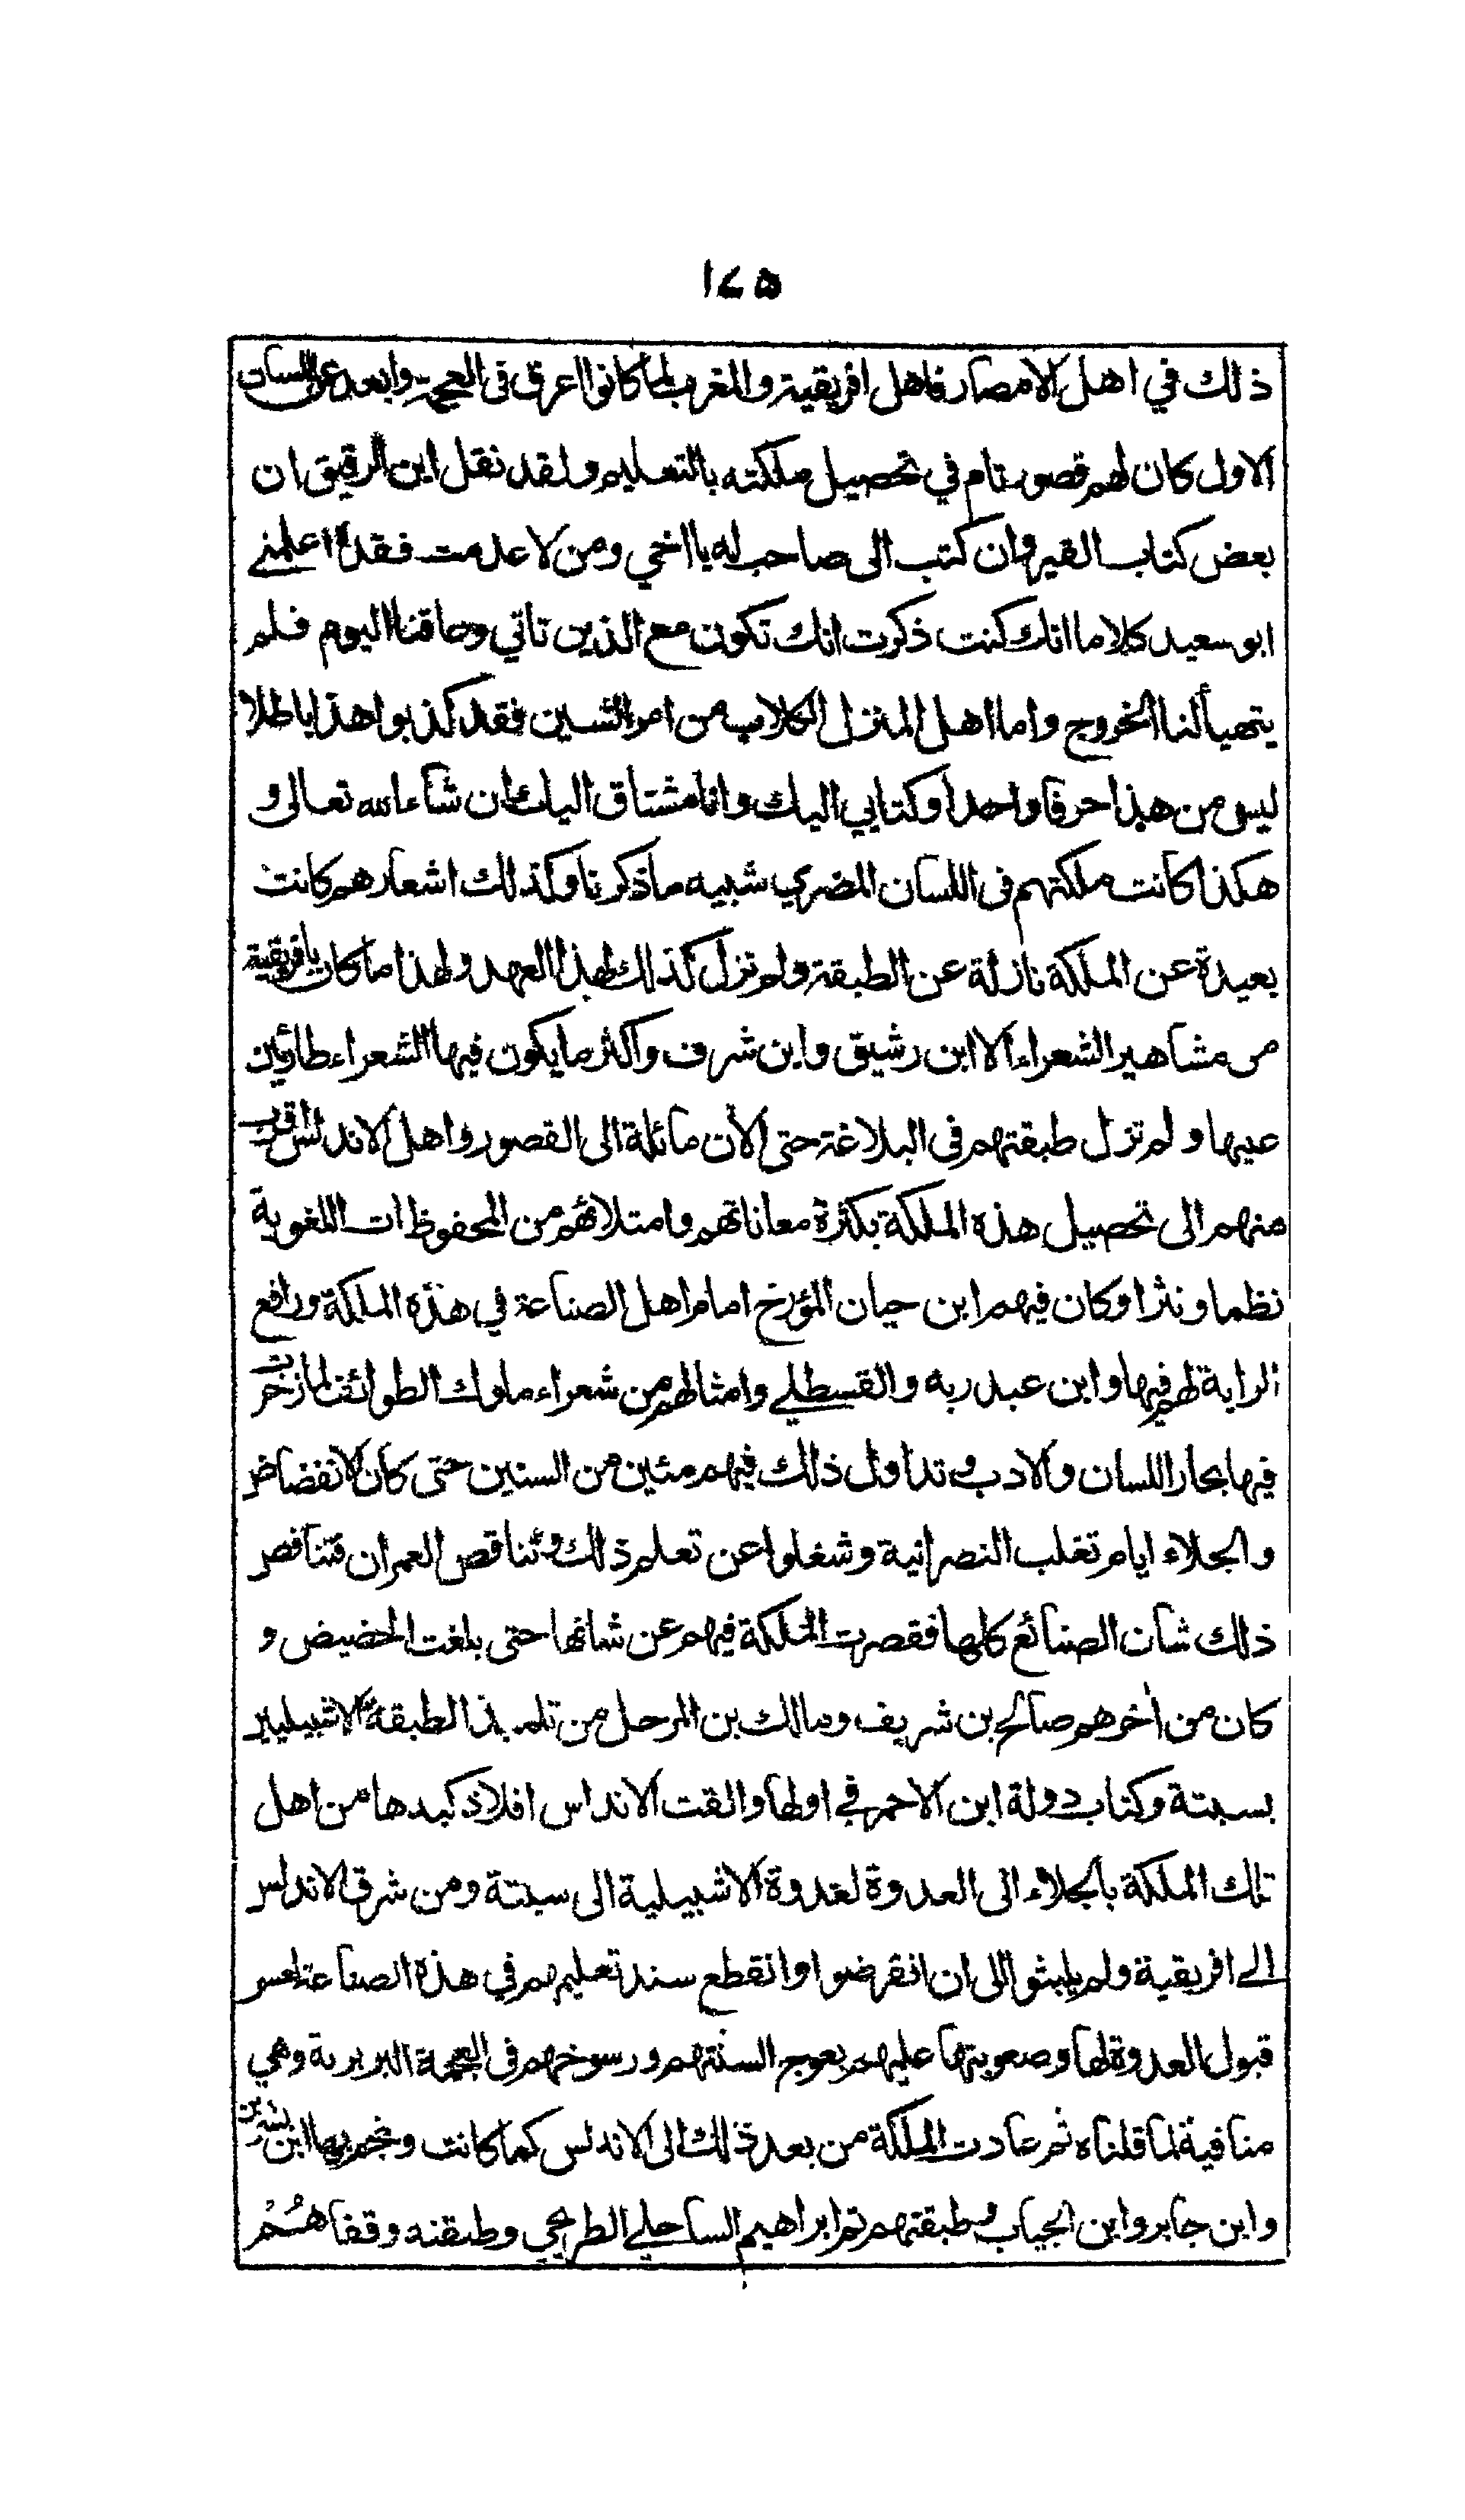 ١٤٥
ذلك في اهل الامصار فاهل افريقية والمغرب لما كانوا اعرق فى العجمة وابعد عن اللسان
الاول كان لهم قصور تام في تحصيل ملكته بالتعليم ولقد نقل ابن الرقيق ان
بعض كتاب القيروان كتب الى صاحب له يا اخي ومن لا عدمت فقده اعلمنے
ابو سعيد كلاما انك كنت ذكرت انك تكون مع الذين تاتي وعاقنا اليوم فلم
يتهيأ لنا الخروج واما اهل المنزل الكلاب من امر الشين فقد كذبوا هذا باطلا
ليس من هذا حرفا واحدا وكتابي اليك وانا مشتاق اليك ان شاء الله تعالى و
هكذا كانت ملكتهم فى اللسان المضري شبيه ما ذكرنا وكذلك اشعارهم كانت
بعيدة عن الملكة نازلة عن الطبقة ولم تزل كذلك لهذا العهد ولهذا ما كان بافريقية
من مشاهير الشعراء الا ابن رشيق وابن شرف واكثر ما يكون فيها الشعراء طارئين
عيها ولم تزل طبقتهم فى البلاغة حتى الأن مائلة الى القصور واهل الاندلس اقرب
منهم الى تحصيل هذه الملكة بكثرة معاناتهم وامتلائهم من المحفوظات اللغوية
نظما ونثرا وكان فيهم ابن حيان المؤرخ امام اهل الصناعة في هذه الملكة ورافع
الراية لهم فيها وابن عبد ربه والقسطلے وامثالهم من شعراء ملوك الطوائف لما زخرت
فيها بحار اللسان والادب وتداول ذلك فيهم مئين من السنين حتى كان الانفضاض
والجلاء ايام تغلب النصرانية وشغلوا عن تعلم ذلك وتناقص العمران فتناقص
ذلك شان الصنائع كلها فقصرت الملكة فيهم عن شانها حتى بلغت الحضيض و
كان من أخرهم صالح بن شريف ومالك بن المرحل من تلميذ الطبقة الاشبيليين
بسبتة وكتاب دولة ابن الاحمر في اولها والقت الاندلس افلاذ كبدها من اهل
تلك الملكة بالجلاء الى العدوة لعدوة الاشبيلية الى سبتة ومن شرق الاندلس
الے افريقية ولم يلبثوا الى ان انقرضوا وانقطع سند تعليمهم في هذه الصناعة لعسر
قبول العدوة لها وصعوبتها عليهم بعوج السنتهم ورسوخهم فى العجمة البربرية وهي
منافية لما قلناه ثم عادت الملكة من بعد ذلك الى الاندلس كما كانت ونجم بها ابن بشرين
وابن جابر وابن الجياب وطبقتهم ثم ابراهيم الساحلے الطريحي وطبقته وقفاهُم